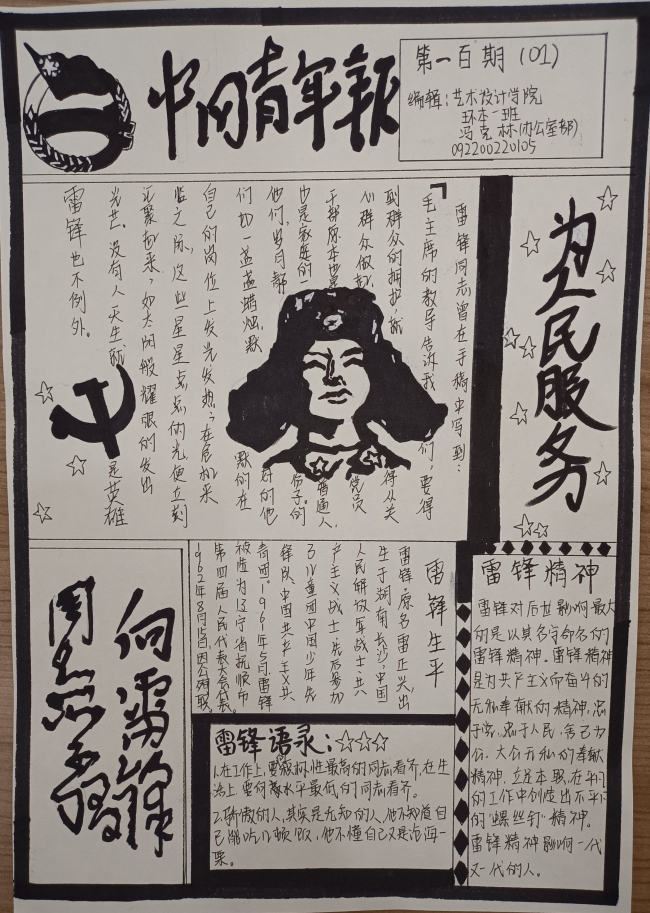 中国青年报
第一百期(01)
编辑:艺术设计学院
环本一班
冯克林(办公室部)
092200220105
为人民服务
雷锋同志曾在手稿中写到:
「毛主席的教导告诉我们,要得
到群众的拥护,
得从关
心群众做起
党员
干部原本也是
普通人,
也是家庭的一
份子。
他们
岁月
好的他
们如一盏盏蜡烛,默
默的在
自己的岗位上发光发热;在危机来
临之际,这些星星点点的光便立刻
汇聚起来,如太阳般耀眼的发出
光芒。没有人天生
是英雄
雷锋也不例外。
向雷锋
同志学习
雷锋生平
雷锋,原名雷正兴,出
生于湖南长沙,中国
人民解放军战士,共
产主义战士,先后参加
了儿童团中国少年先
锋队、中国共产主义共
青团。1961年5月,雷锋
被选为辽宁省抚顺市
第四届人民代表大会代表。
1962年8月15日因公殉职。
雷锋语录:☆☆☆
1.在工作上,要向积极性最高的同志看齐,在生
活上,要向水平最低的同志看齐。
2.骄傲的人,其实是无知的人,他不知道自
己能吃几顿饭,他不懂自己又是沧海一
粟。
雷锋精神
雷锋对后世影响最大
的是以其名字命名的
雷锋精神。雷锋精神
是为共产主义而奋斗的
无私奉献的精神,忠
于党,忠于人民,舍己为
公,大公无私的奉献
精神,立足本职,在平凡
的工作中创造出不平凡
的“螺丝钉”精神。
雷锋精神影响一代
又一代的人。